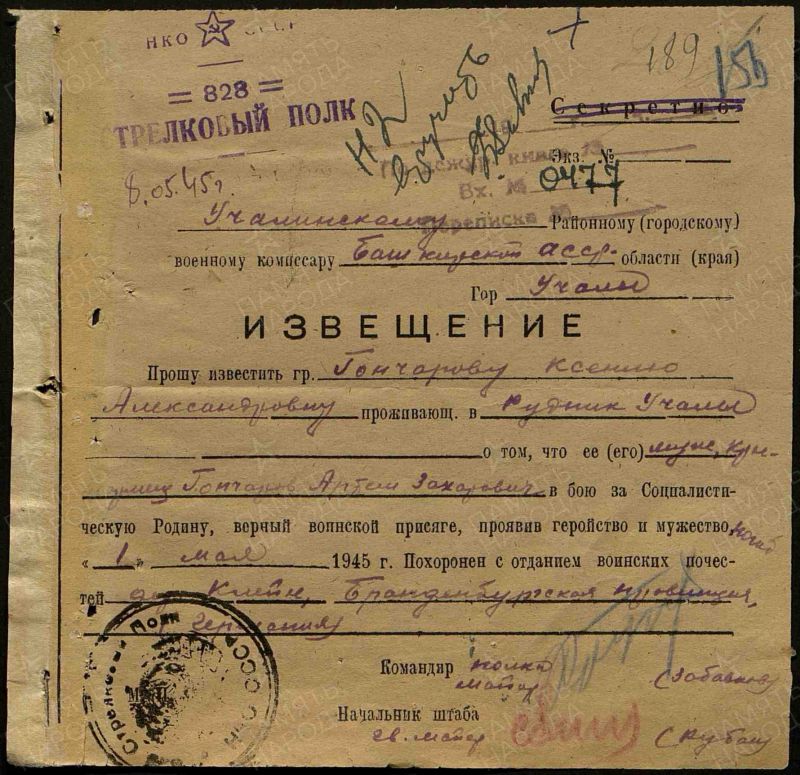 НКО СССР
= 828 =
СТРЕЛКОВЫЙ ПОЛК
8.05.45г.
Н2
189 156
Секретно
Экз. №
Вх. №
0477
переписка
Учалинскому Районному (городскому)
военному комиссару Башкирской АССР. области (края)
Гор Учалы
ИЗВЕЩЕНИЕ
Прошу известить гр. Гончарову Ксению
Александровну проживающ. в Рудник Учалы
о том, что ее (его) муж, кра-
Гончаров Артем Захарович в бою за Социалисти-
ческую Родину, верный воинской присяге, проявив геройство и мужество, погиб
« 1 » мая 1945 г. Похоронен с отданием воинских почес-
тей Бранденбургская провинция,
Германия
Командир полка
майор
Начальник штаба
гв. майор